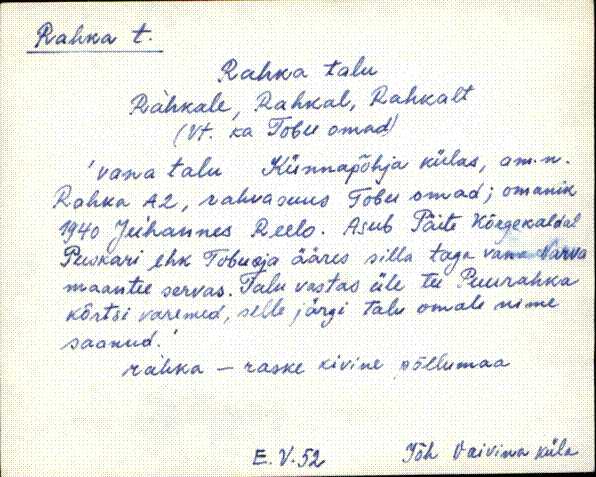 Rahka t.
Rahka talu
Ràhkale, Rahkal, Rahkalt
(Vt. ka Tobu omad)
'vana talu Künnapõhja külas, am.n.
Rahka A2, rahvasuus Tobu omad; omanik
1940 Juhannes Reelo. Asub Päite Kõrgekaldal
Puskari ehk Tobuoja ääres silla taga vana Narva
maantee servas. Talu vastas üle tee Puurahka
kõrtsi varemed, selle järgi talu omale nime
saanud.'
ràhka – raske kivine põllumaa
E.V.52 Jõh Vaivina küla